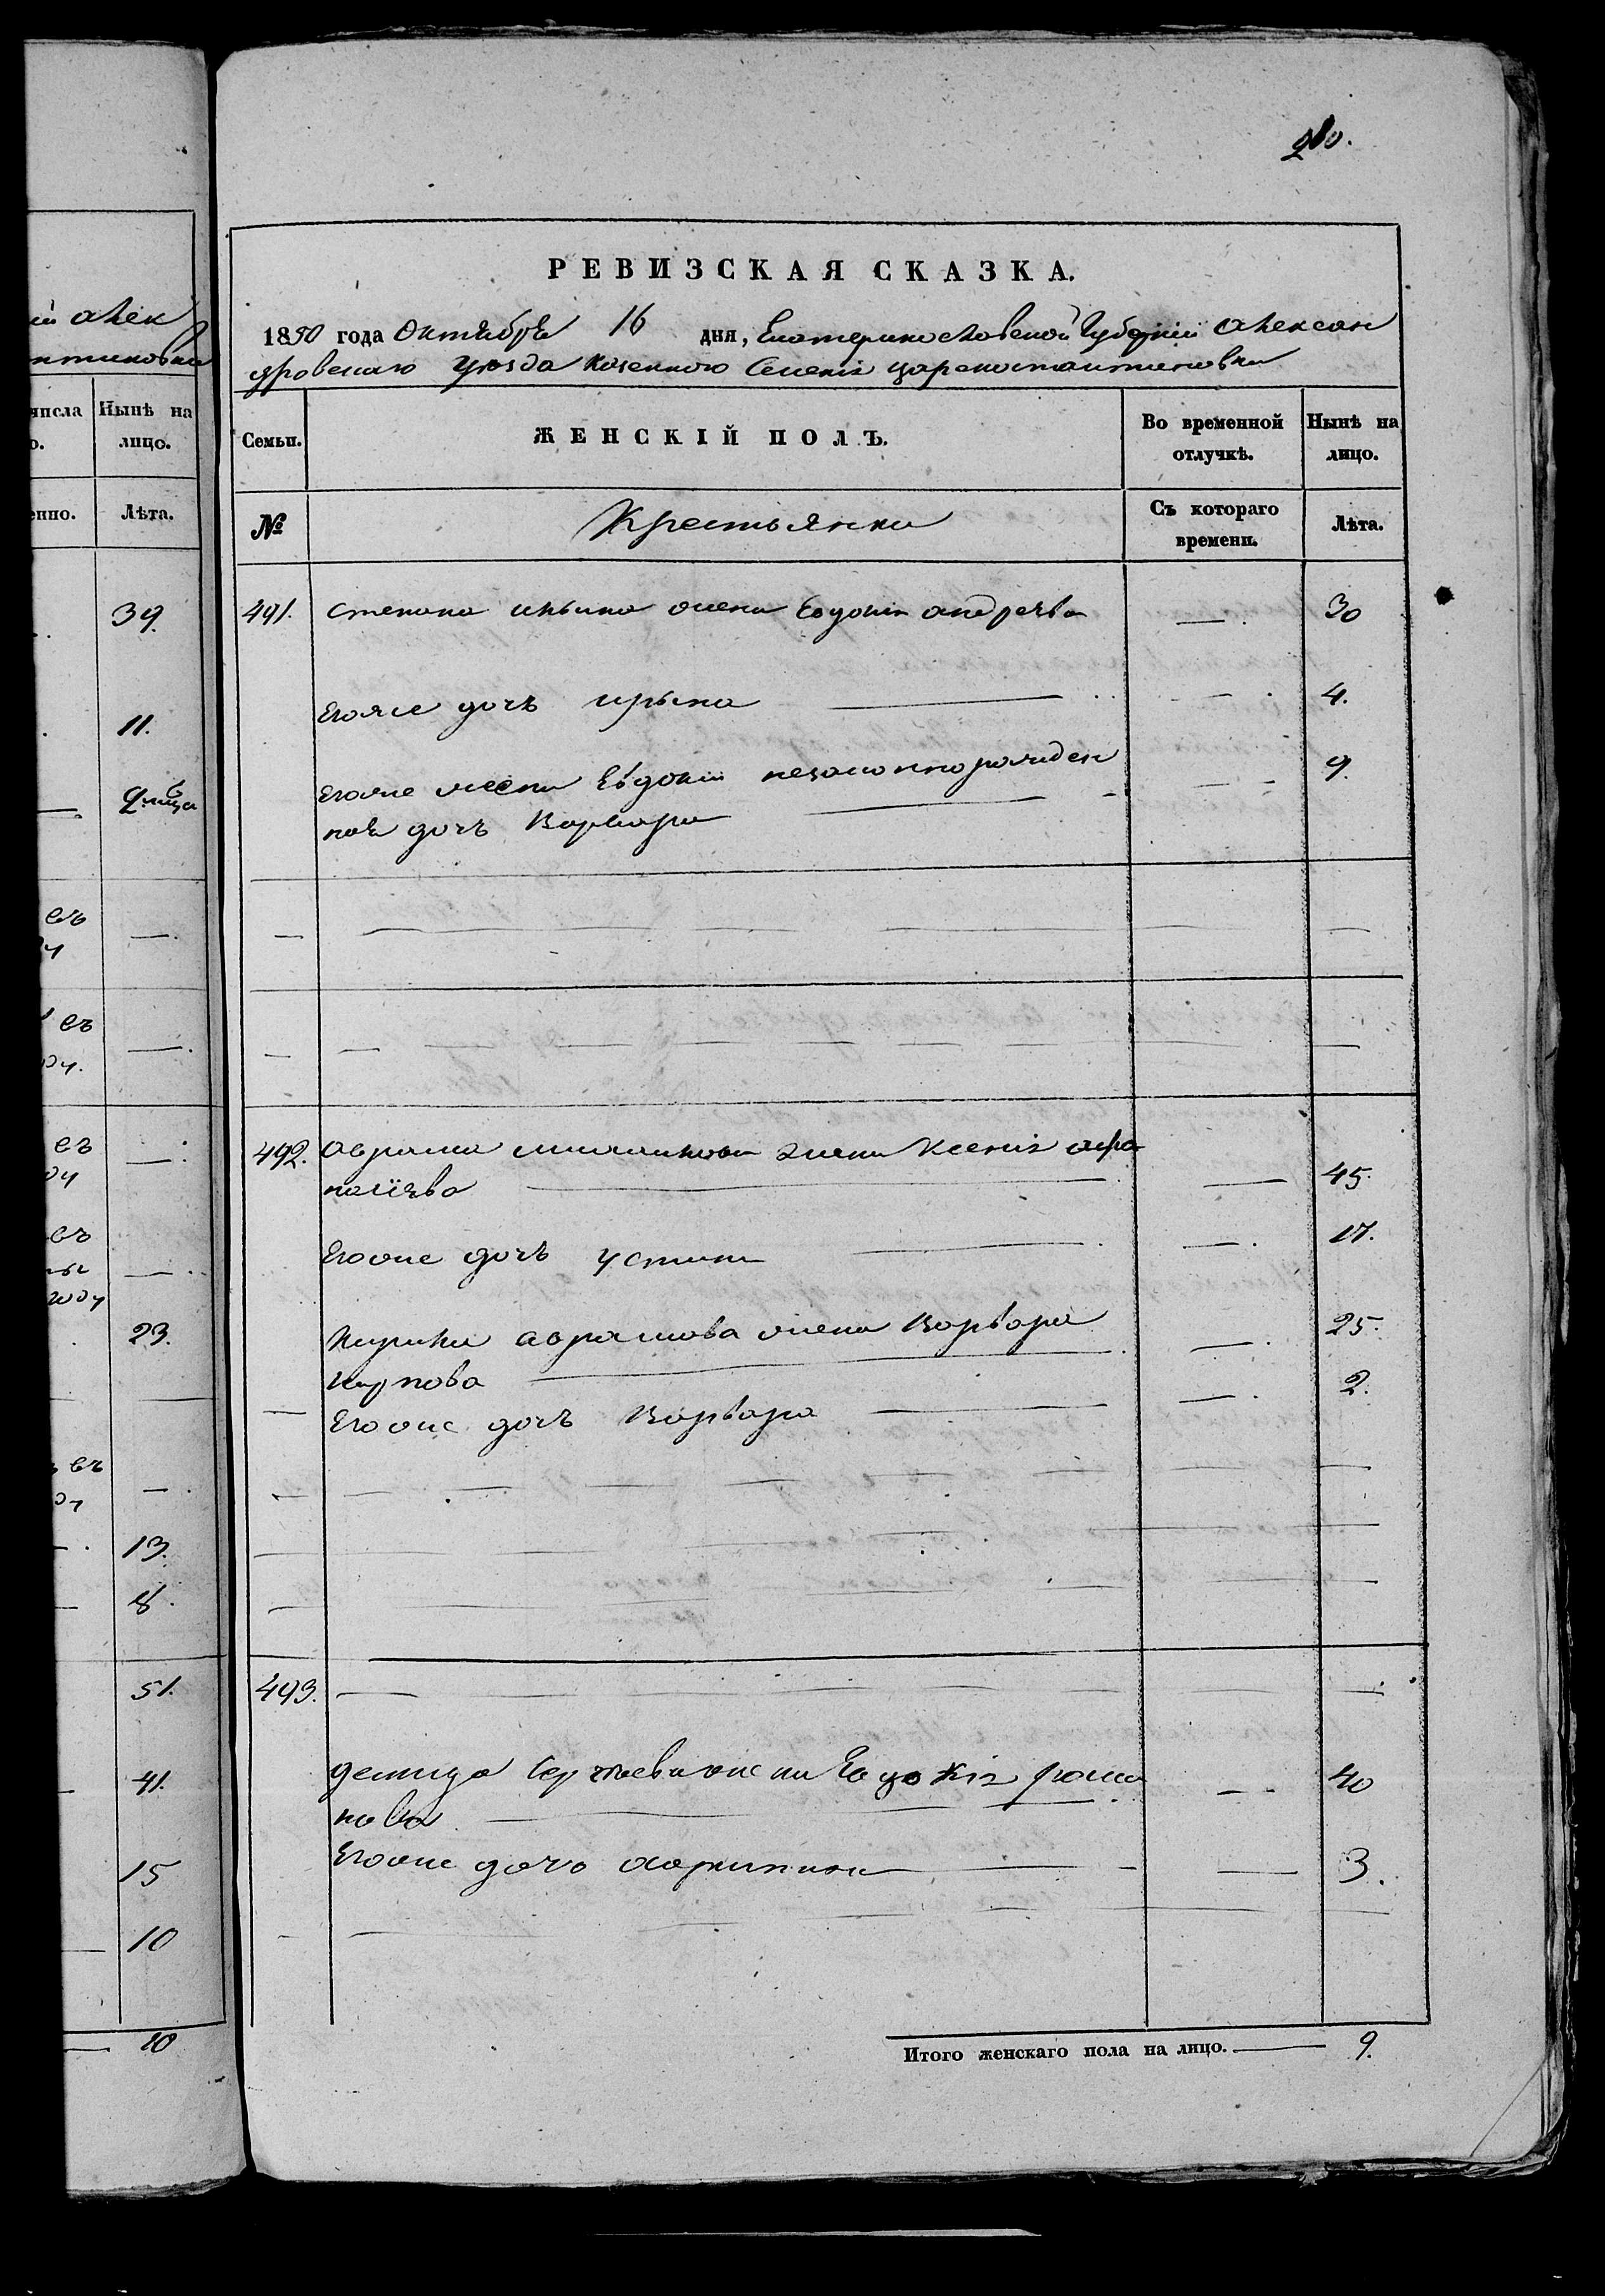 280.
ій Алек
нтиновки
числа
о.
Нынѣ на
лицо.
енно.
Лѣта.
39.
11.
въ
въ
въ
въ
23.
въ
13.
8.
51.
41.
15
10
10
РЕВИЗСКАЯ СКАЗКА.
1850 года Октября 16 дня, Екатеринославской Губерніи Алексан
дровскаго уѣзда казенного Селенія Цареконстантиновки
Семьи.
ЖЕНСКІЙ ПОЛЪ.
Во временной
отлучкѣ.
Нынѣ на
лицо.
№
Крестьянки
Съ котораго
времени.
Лѣта.
491. Степана ильина жена Евдокія андреева — . 30
Егоже дочь ирына — . 4.
Егоже жены Евдокіи незаконнорожден
ная дочь Варвара — 9
492. Аврама жена Ксенія афа
насіева — 45.
Егоже дочь устина — . 17.
Кирила аврамова жена Варвара
карпова — . 25.
Егоже дочь Варвара — . 2.
493.
демида Сергѣева жена Евдокія рома
нова — 40
Егоже дочь — 3.
Итого женскаго пола на лицо. — 9.